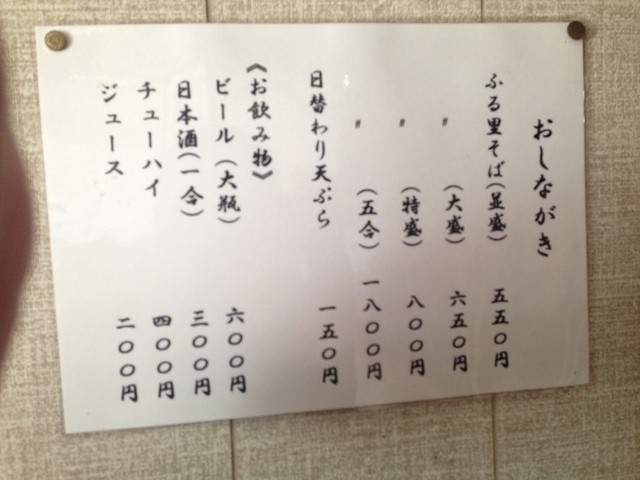 おしながき
ふる里そば(並盛) 五五〇円
〃 (大盛) 六五〇円
〃 (特盛) 八〇〇円
〃 (五合) 一八〇〇円
日替わり天ぷら 一五〇円
《お飲み物》
ビール (大瓶) 六〇〇円
日本酒(一合) 三〇〇円
チューハイ 四〇〇円
ジュース 二〇〇円